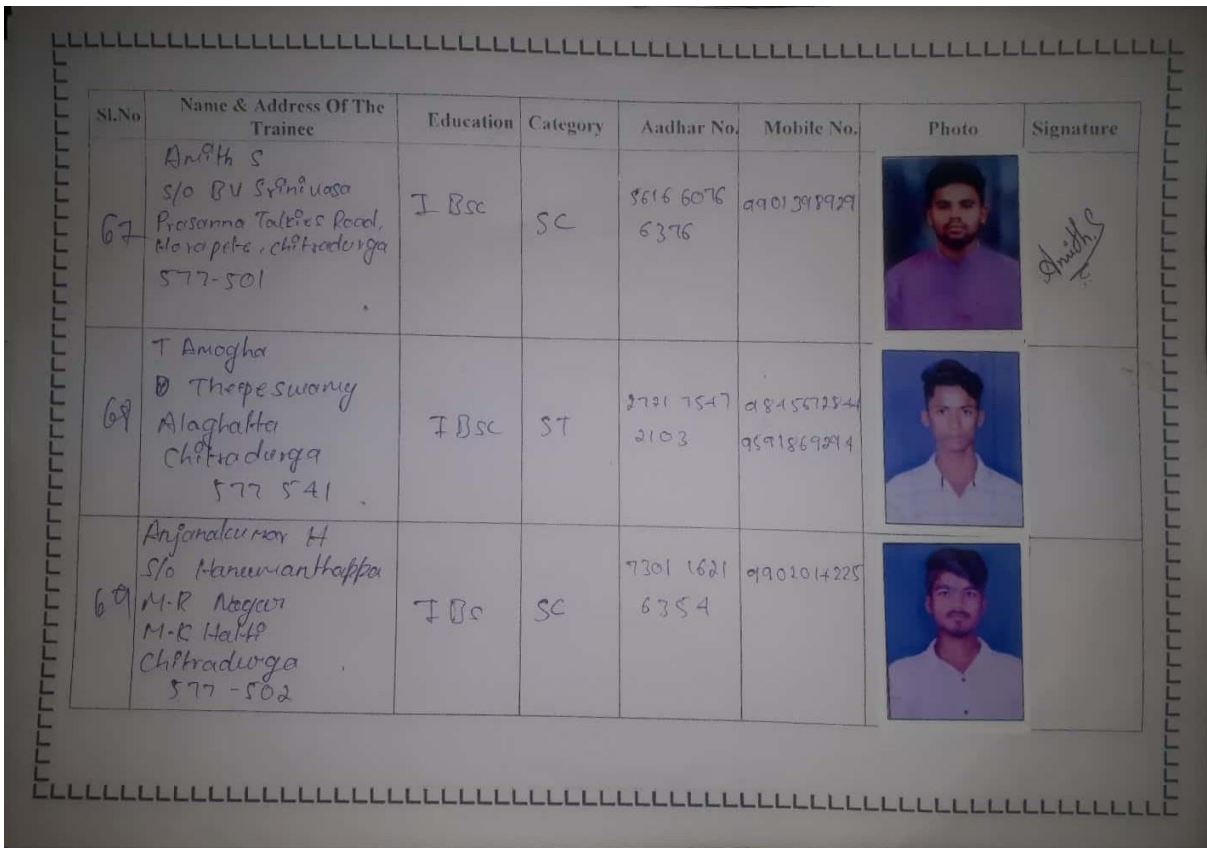 Sl.No
Name & Address Of The Trainee
Education
Category
Aadhar No.
Mobile No.
Photo
Signature
67
Amith S
S/o BV Srinivasa
Prasanna Talkies Road,
Horapete, chitradurga
577-501
I Bsc
SC
6076
6376
9901398929
Amith.S
68
T Amogha
Thepeswamy
Alaghatta
Chitradurga
577 541
I BSC
ST
7547
2103
9591869294
69
Anjanakumar H
S/o Hanumanthappa
M.R Nagar
M.K Hatti
Chitradurga
577-502
I BSc
SC
7301 1621
6354
9902014225